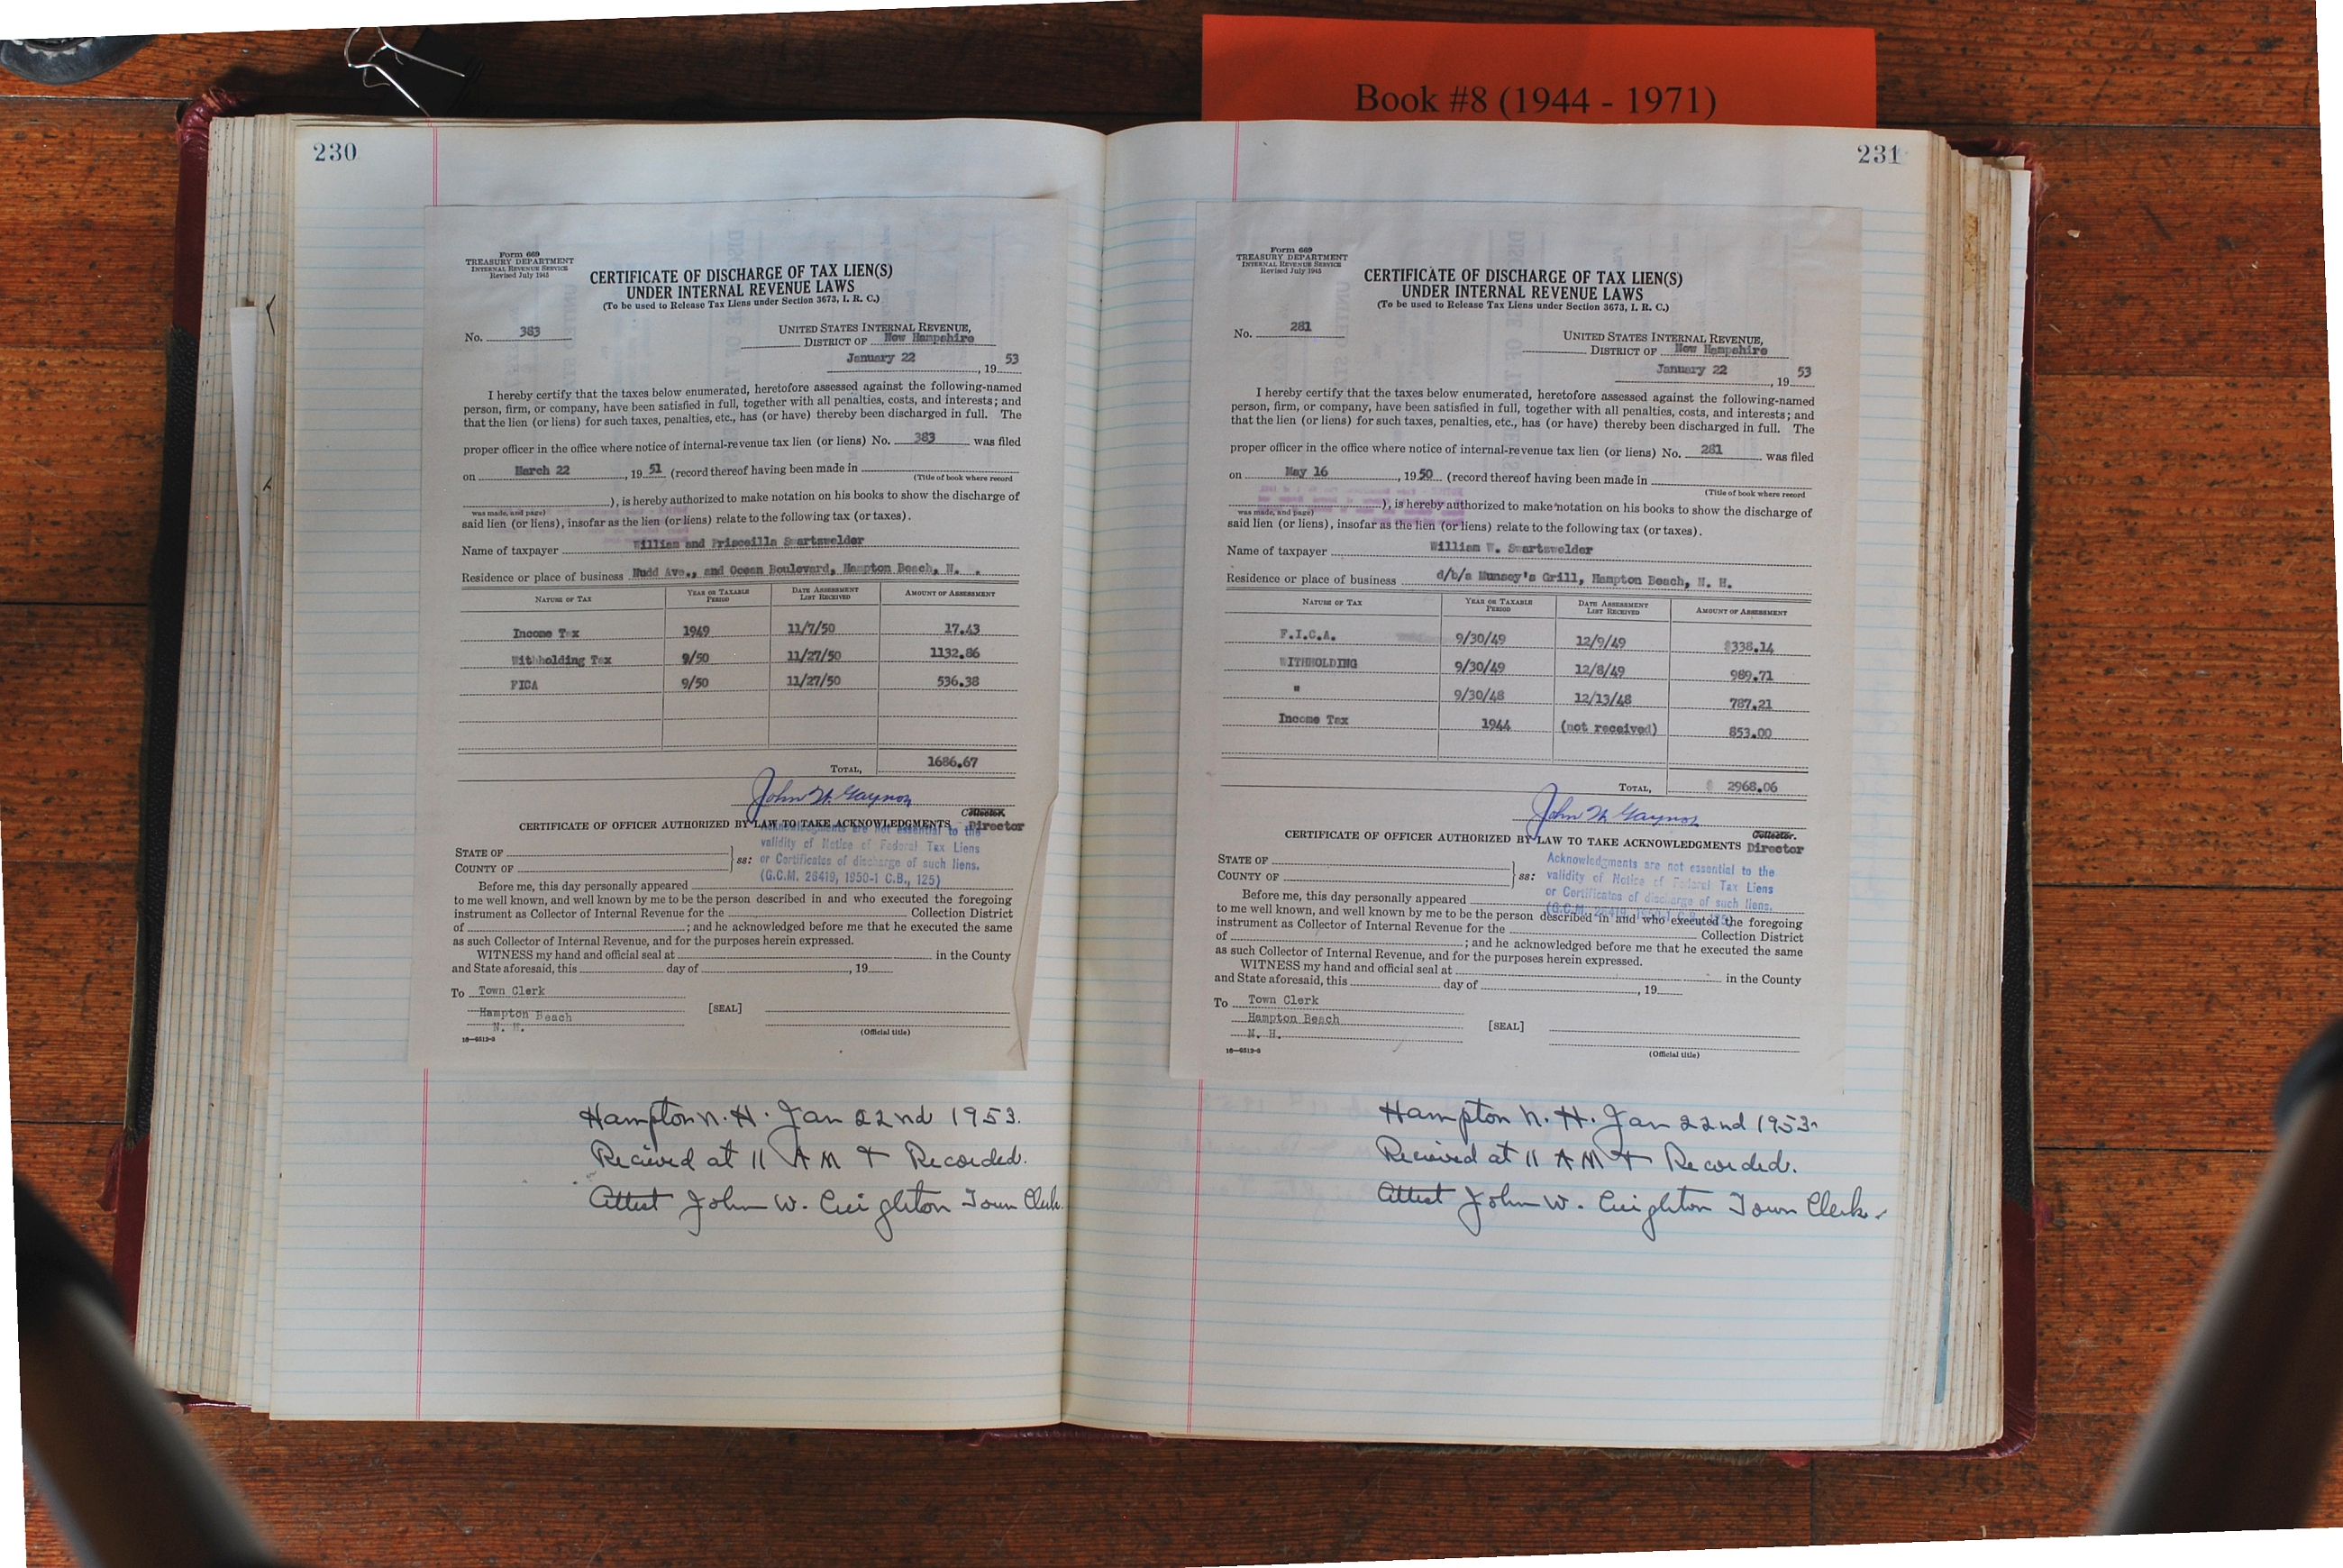 Book #8 (1944 - 1971)
230
Form 669
TREASURY DEPARTMENT
INTERNAL REVENUE SERVICE
Revised July 1945
CERTIFICATE OF DISCHARGE OF TAX LIEN(S)
UNDER INTERNAL REVENUE LAWS
(To be used to Release Tax Liens under Section 3673, I. R. C.)
No. 383
UNITED STATES INTERNAL REVENUE,
DISTRICT OF New Hampshire
January 22, 19 53
I hereby certify that the taxes below enumerated, heretofore assessed against the following-named
person, firm, or company, have been satisfied in full, together with all penalties, costs, and interests; and
that the lien (or liens) for such taxes, penalties, etc., has (or have) thereby been discharged in full. The
proper officer in the office where notice of internal-revenue tax lien (or liens) No. 383 was filed
on March 22, 19 51 (record thereof having been made in
(Title of book where record
), is hereby authorized to make notation on his books to show the discharge of
was made, and page)
said lien (or liens), insofar as the lien (or liens) relate to the following tax (or taxes).
Name of taxpayer William and Prisceilla Swartswelder
Residence or place of business Nudd Ave., and Ocean Boulevard, Hampton Beach, N. .
NATURE OF TAX YEAR OR TAXABLE PERIOD DATE ASSESSMENT LIST RECEIVED AMOUNT OF ASSESSMENT
Income Tax 1949 11/7/50 17.43
Withholding Tax 9/50 11/27/50 1132.86
FICA 9/50 11/27/50 536.38
TOTAL, 1686.67
John W. Gaynor
Collector.
CERTIFICATE OF OFFICER AUTHORIZED BY LAW TO TAKE ACKNOWLEDGMENTS Director
Acknowledgments are not essential to the
validity of Notice of Federal Tax Liens
or Certificates of discharge of such liens.
(G.C.M. 26419, 1950-1 C.B., 125)
STATE OF
COUNTY OF ss:
Before me, this day personally appeared
to me well known, and well known by me to be the person described in and who executed the foregoing
instrument as Collector of Internal Revenue for the Collection District
of ; and he acknowledged before me that he executed the same
as such Collector of Internal Revenue, and for the purposes herein expressed.
WITNESS my hand and official seal at in the County
and State aforesaid, this day of , 19
To Town Clerk
Hampton Beach [SEAL]
N. H.
(Official title)
16—6512-3
Hampton N. H. Jan 22nd 1953.
Recieved at 11 AM + Recorded.
Attest John W. Creighton Town Clerk.
231
Form 669
TREASURY DEPARTMENT
INTERNAL REVENUE SERVICE
Revised July 1945
CERTIFICATE OF DISCHARGE OF TAX LIEN(S)
UNDER INTERNAL REVENUE LAWS
(To be used to Release Tax Liens under Section 3673, I. R. C.)
No. 281
UNITED STATES INTERNAL REVENUE,
DISTRICT OF New Hampshire
January 22, 19 53
I hereby certify that the taxes below enumerated, heretofore assessed against the following-named
person, firm, or company, have been satisfied in full, together with all penalties, costs, and interests; and
that the lien (or liens) for such taxes, penalties, etc., has (or have) thereby been discharged in full. The
proper officer in the office where notice of internal-revenue tax lien (or liens) No. 281 was filed
on May 16, 19 50 (record thereof having been made in
(Title of book where record
), is hereby authorized to make notation on his books to show the discharge of
was made, and page)
said lien (or liens), insofar as the lien (or liens) relate to the following tax (or taxes).
Name of taxpayer William W. Swartswelder
Residence or place of business d/b/a Munsey's Grill, Hampton Beach, N. H.
NATURE OF TAX YEAR OR TAXABLE PERIOD DATE ASSESSMENT LIST RECEIVED AMOUNT OF ASSESSMENT
F.I.C.A. 9/30/49 12/9/49 $338.14
WITHHOLDING 9/30/49 12/8/49 989.71
" 9/30/48 12/13/48 787.21
Income Tax 1944 (not received) 853.00
TOTAL, $ 2968.06
John W Gaynor
Collector.
CERTIFICATE OF OFFICER AUTHORIZED BY LAW TO TAKE ACKNOWLEDGMENTS Director
Acknowledgments are not essential to the
validity of Notice of Federal Tax Liens
or Certificates of discharge of such liens.
(G.C.M. 26419, 1950-1 C.B., 125)
STATE OF
COUNTY OF ss:
Before me, this day personally appeared
to me well known, and well known by me to be the person described in and who executed the foregoing
instrument as Collector of Internal Revenue for the Collection District
of ; and he acknowledged before me that he executed the same
as such Collector of Internal Revenue, and for the purposes herein expressed.
WITNESS my hand and official seal at in the County
and State aforesaid, this day of , 19
To Town Clerk
Hampton Beach [SEAL]
N. H.
(Official title)
16—6512-3
Hampton N. H. Jan 22nd 1953.
Recieved at 11 AM + Recorded.
Attest John W. Creighton Town Clerk.